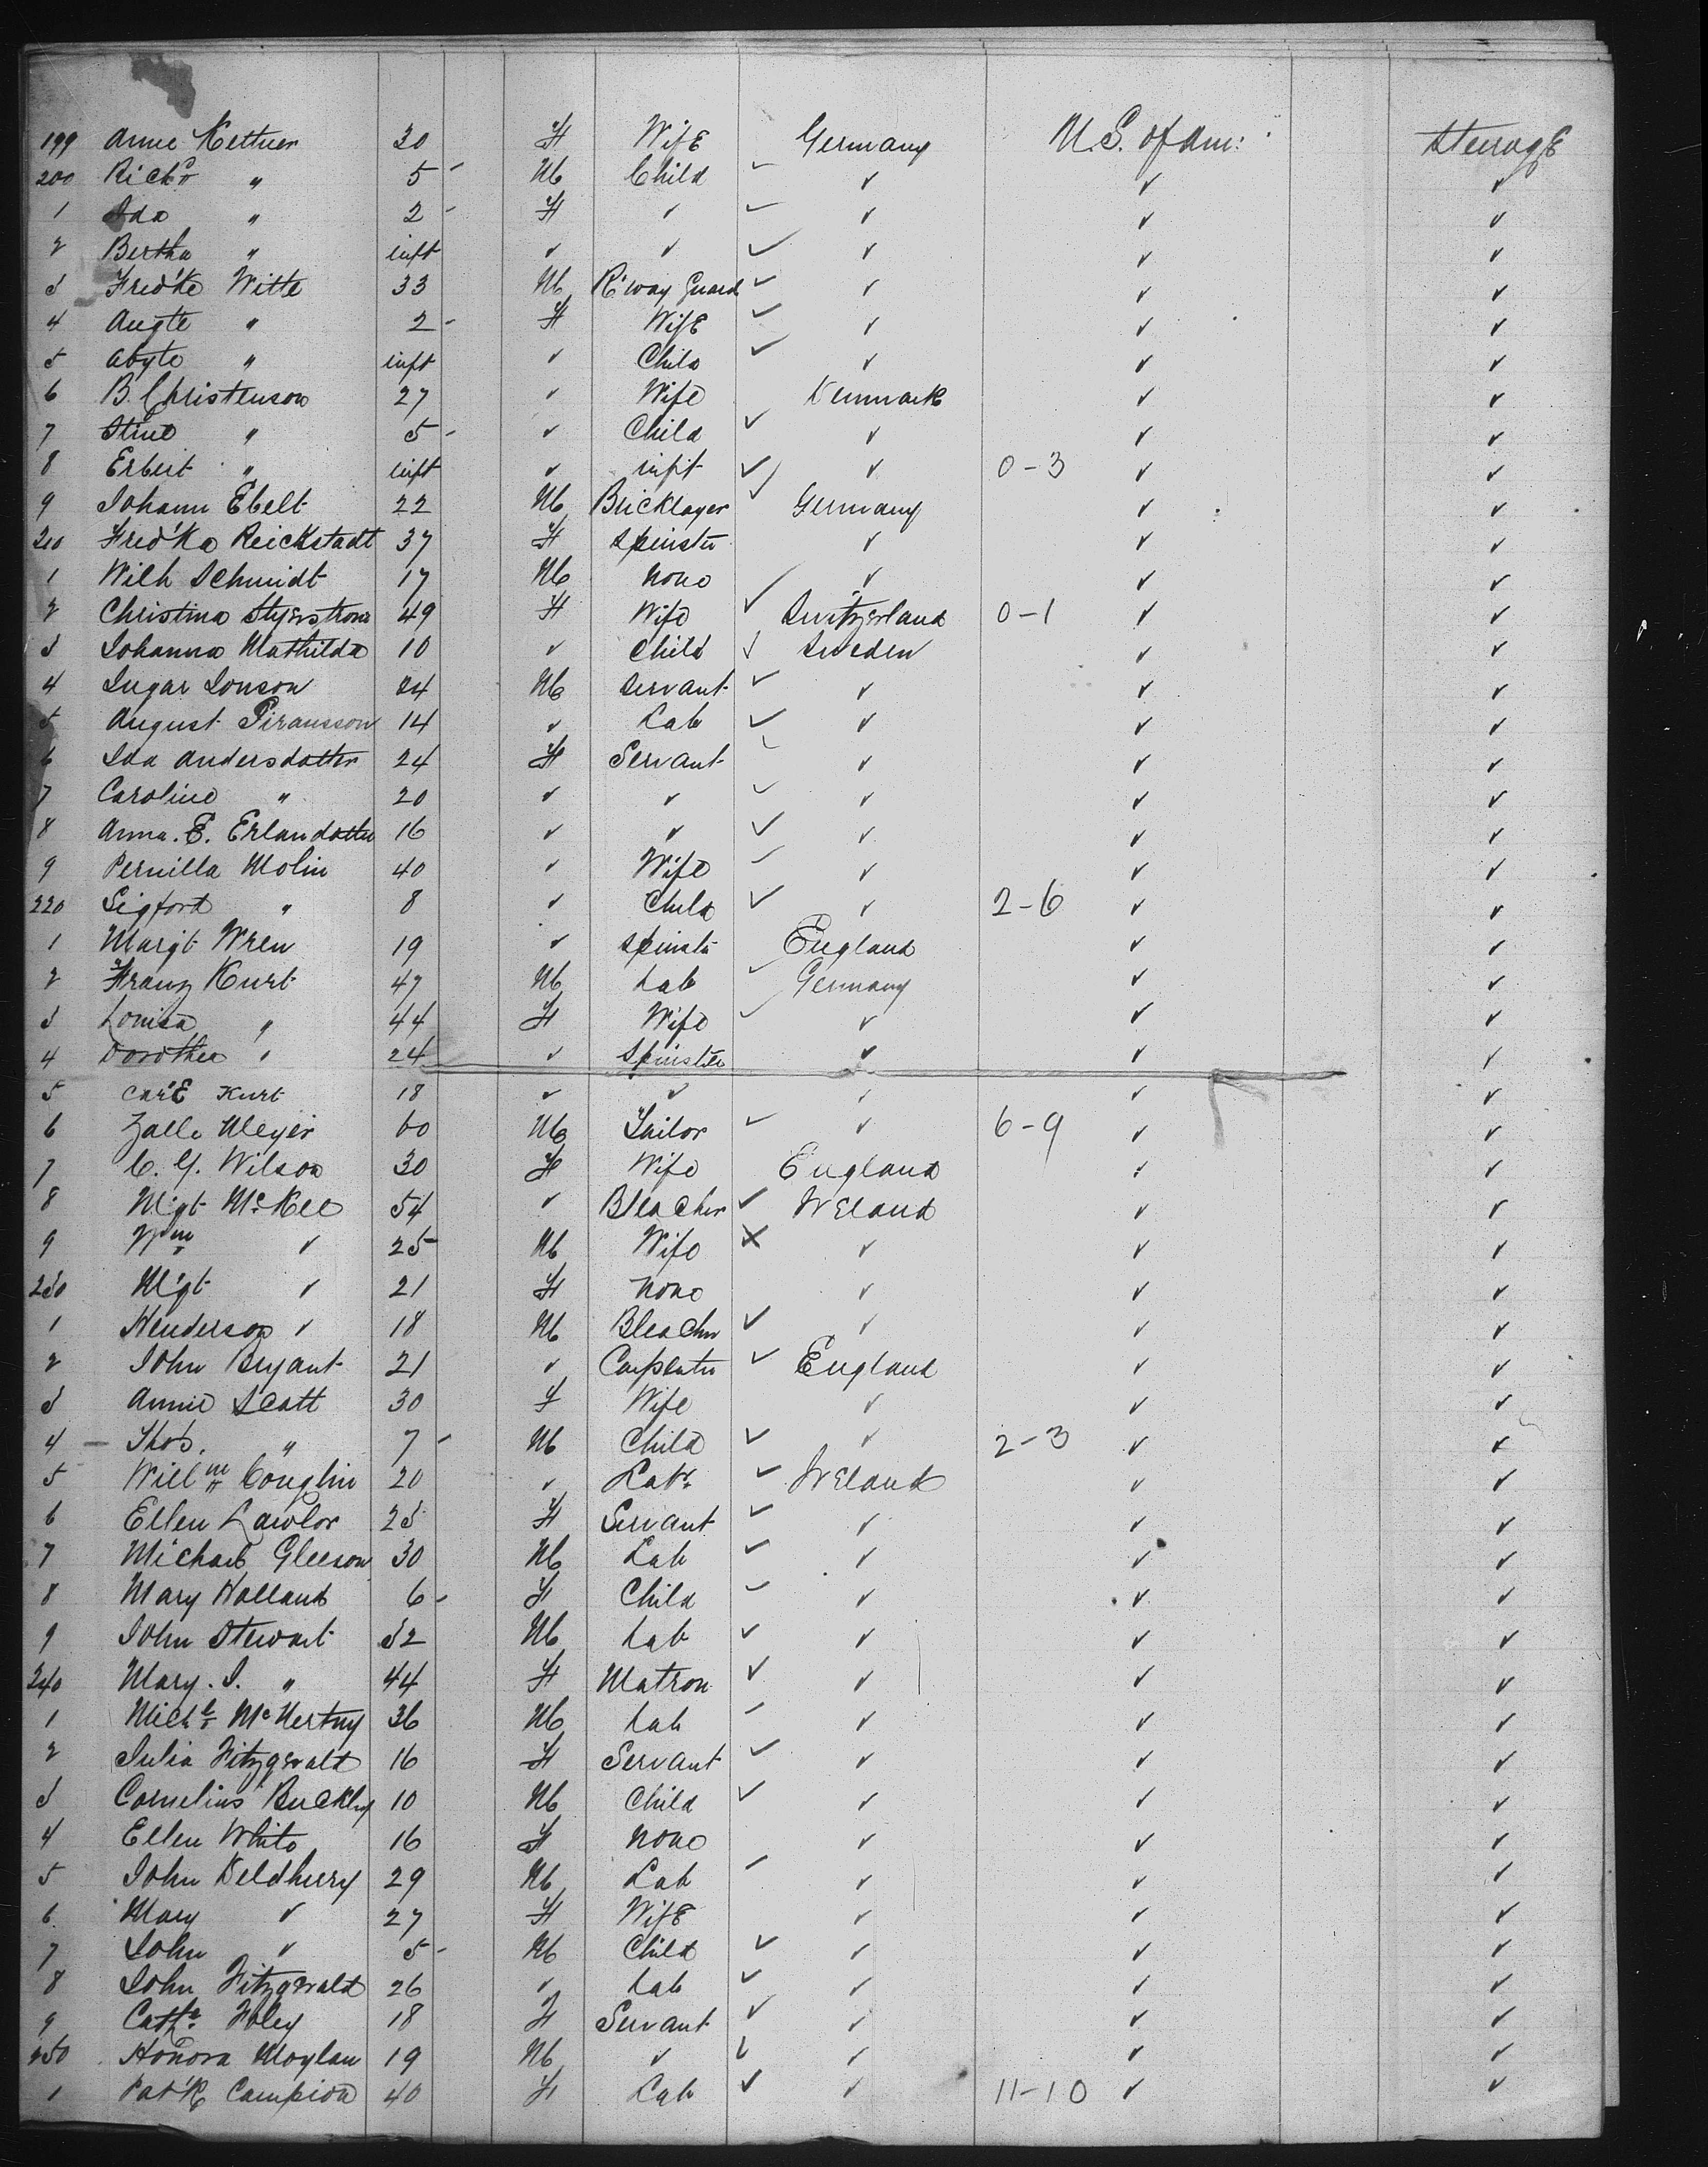 199 Anne Kettner 30 F Wife Germany U.S. of Am: Steerage
200 Richd " 5 - M Child ✓ ✓ ✓ ✓
1 Ida " 2 - F ✓ ✓ ✓ ✓ ✓
2 Bertha " inft ✓ ✓ ✓ ✓ ✓ ✓
3 Fred'ke Witte 33 M R'way Guard ✓ ✓ ✓ ✓
4 Augte " 2 - F Wife ✓ ✓ ✓ ✓
5 " inft ✓ Child ✓ ✓ ✓ ✓
6 B. Christenson 27 ✓ Wife Denmark ✓ ✓
7 Stine " 5 - ✓ Child ✓ ✓ ✓ ✓
8 " inft ✓ infit ✓ ✓ 0-3 ✓ ✓
9 Johann Ebelt 22 M Bricklayer ✓ Germany ✓ ✓
210 Fred'ka Reickstadt 37 F Spinstr ✓ ✓ ✓
1 Wilh Schmidt 17 M None ✓ ✓ ✓ ✓
2 Christina 49 F Wife ✓ Switzerland 0-1 ✓ ✓
3 Johanna Mathilda 10 ✓ Child ✓ Sweden ✓ ✓
4 Ingar Jonson 24 M Servant ✓ ✓ ✓ ✓
5 August 14 ✓ Lab ✓ ✓ ✓ ✓
6 Ida Andersdatter 24 F Servant ✓ ✓ ✓ ✓
7 Caroline " 20 ✓ ✓ ✓ ✓ ✓ ✓
8 Anna. E. Erlandatter 16 ✓ ✓ ✓ ✓ ✓ ✓
9 Pernilla Molin 40 ✓ Wife ✓ ✓ ✓ ✓
220 Sigford " 8 ✓ Child ✓ ✓ 2-6 ✓ ✓
1 Margt Wren 19 ✓ Spinstr England ✓ ✓
2 Franz Kurt 47 M Lab ✓ Germany ✓ ✓
3 Louisa " 44 F Wife ✓ ✓ ✓ ✓
4 Dorothea " 24 ✓ Spinster ✓ ✓ ✓
5 Car'E Kurt 18 ✓ ✓ ✓ ✓ ✓
6 Zalle Meyer 60 M Tailor ✓ ✓ 6-9 ✓ ✓
7 C. Y. Wilson 30 F Wife England ✓ ✓
8 Mgt McKee 54 ✓ Bleacher ✓ Ireland ✓ ✓
9 Wm ✓ 25 M Wife X ✓ ✓ ✓
230 Mgt ✓ 21 F None ✓ ✓ ✓
1 Henderson ✓ 18 M Bleachr ✓ ✓ ✓ ✓
2 John Bryant 21 ✓ Carpentr ✓ England ✓ ✓
3 Annie Scott 30 F Wife ✓ ✓ ✓
4 - Thos. " 7 - M Child ✓ ✓ 2-3 ✓ ✓
5 Willm Coughlin 20 ✓ Labr ✓ Ireland ✓ ✓
6 Ellen Lawlor 23 F Servant ✓ ✓ ✓ ✓
7 Michael Gleeson 30 M Lab ✓ ✓ ✓ ✓
8 Mary Holland 6 - F Child ✓ ✓ ✓ ✓
9 John Stewart 32 M Lab ✓ ✓ ✓ ✓
240 Mary. J. " 44 F Matron ✓ ✓ ✓ ✓
1 Michl McNertny 36 M Lab ✓ ✓ ✓ ✓
2 Julia Fitzgerald 16 F Servant ✓ ✓ ✓ ✓
3 Cornelius Buckley 10 M Child ✓ ✓ ✓ ✓
4 Ellen White 16 F None ✓ ✓ ✓
5 John Deldherry 29 M Lab ✓ ✓ ✓ ✓
6 Mary ✓ 27 F Wife ✓ ✓ ✓
7 John ✓ 5 - M Child ✓ ✓ ✓ ✓
8 John Fitzgerald 26 ✓ Lab ✓ ✓ ✓ ✓
9 Cathe Foley 18 F Servant ✓ ✓ ✓ ✓
250 Honora Moylan 19 M ✓ ✓ ✓ ✓ ✓
1 Pat'k Campion 40 F Lab ✓ ✓ 11-10 ✓ ✓